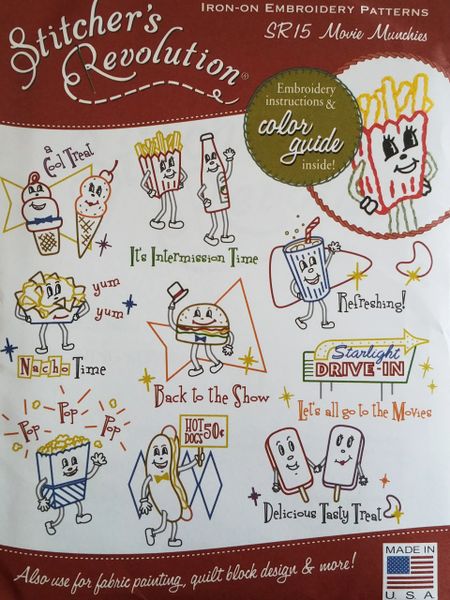 Stitcher's
Revolution®
IRON-ON EMBROIDERY PATTERNS
SR15 Movie Munchies
Embroidery
instructions &
color
guide
inside!
a
Cool Treat
It's Intermission Time
yum
yum
Refreshing!
Nacho Time
Back to the Show
Starlight
DRIVE-IN
Let's all go to the Movies
Pop
Pop
Pop
HOT
DOGS 50¢
Delicious Tasty Treat
Also use for fabric painting, quilt block design & more!
MADE IN
U.S.A